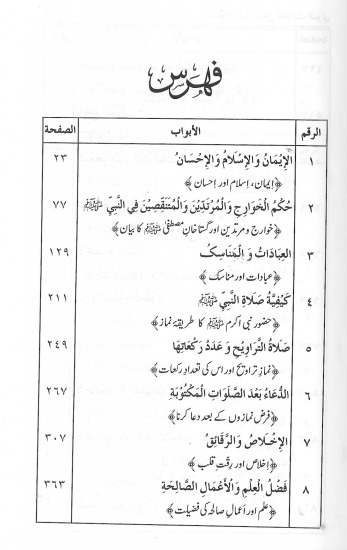 فہرس
الرقم الأبواب الصفحة
۱ الإِيْمَانُ وَالإِسْلَامُ وَالإِحْسَانُ ۲۳
﴿إیمان، إسلام اور إحسان﴾
۲ حُكْمُ الْخَوَارِجِ وَالْمُرْتَدِّيْنَ وَالْمُتَنَقِّصِيْنَ فِي النَّبِيِّ ﷺ ۷۷
﴿خوارج و مرتدین اور گستاخانِ مصطفیٰ ﷺ کا بیان﴾
۳ العِبَادَاتُ وَ الْمَنَاسِكُ ۱۲۹
﴿عبادات اور مناسک﴾
۴ كَيْفِيَّةُ صَلَاةِ النَّبِيِّ ﷺ ۲۱۱
﴿حضور نبی اکرم ﷺ کا طریقۂ نماز﴾
۵ صَلَاةُ التَّرَاوِيْحِ وَ عَدَدُ رَكْعَاتِهَا ۲۴۹
﴿نمازِ تراویح اور اس کی تعدادِ رکعات﴾
۶ الدُّعَاءُ بَعْدَ الصَّلَوَاتِ الْمَكْتُوْبَةِ ۲۶۷
﴿فرض نمازوں کے بعد دعا کرنا﴾
۷ الإِخْلَاصُ وَالرَّقَائِقُ ۳۰۷
﴿إخلاص اور رقّتِ قلب﴾
۸ فَضْلُ الْعِلْمِ وَالْأَعْمَالِ الصَّالِحَةِ ۳۶۳
﴿علم اور اَعمالِ صالحہ کی فضیلت﴾